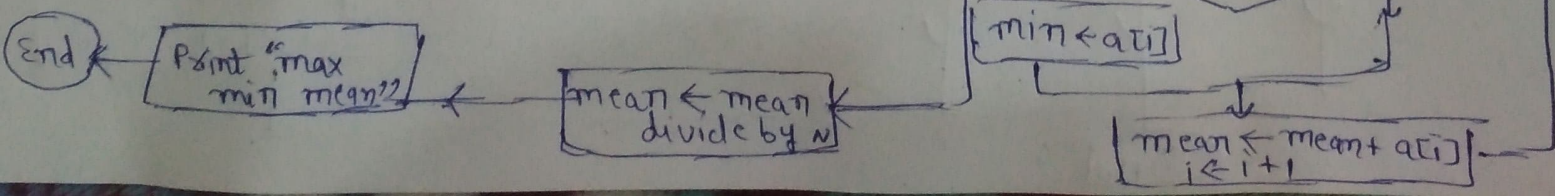 End
Print "max
min mean"
mean ← mean
divide by N
min ← a[i]
mean ← mean + a[i]
i ← i + 1